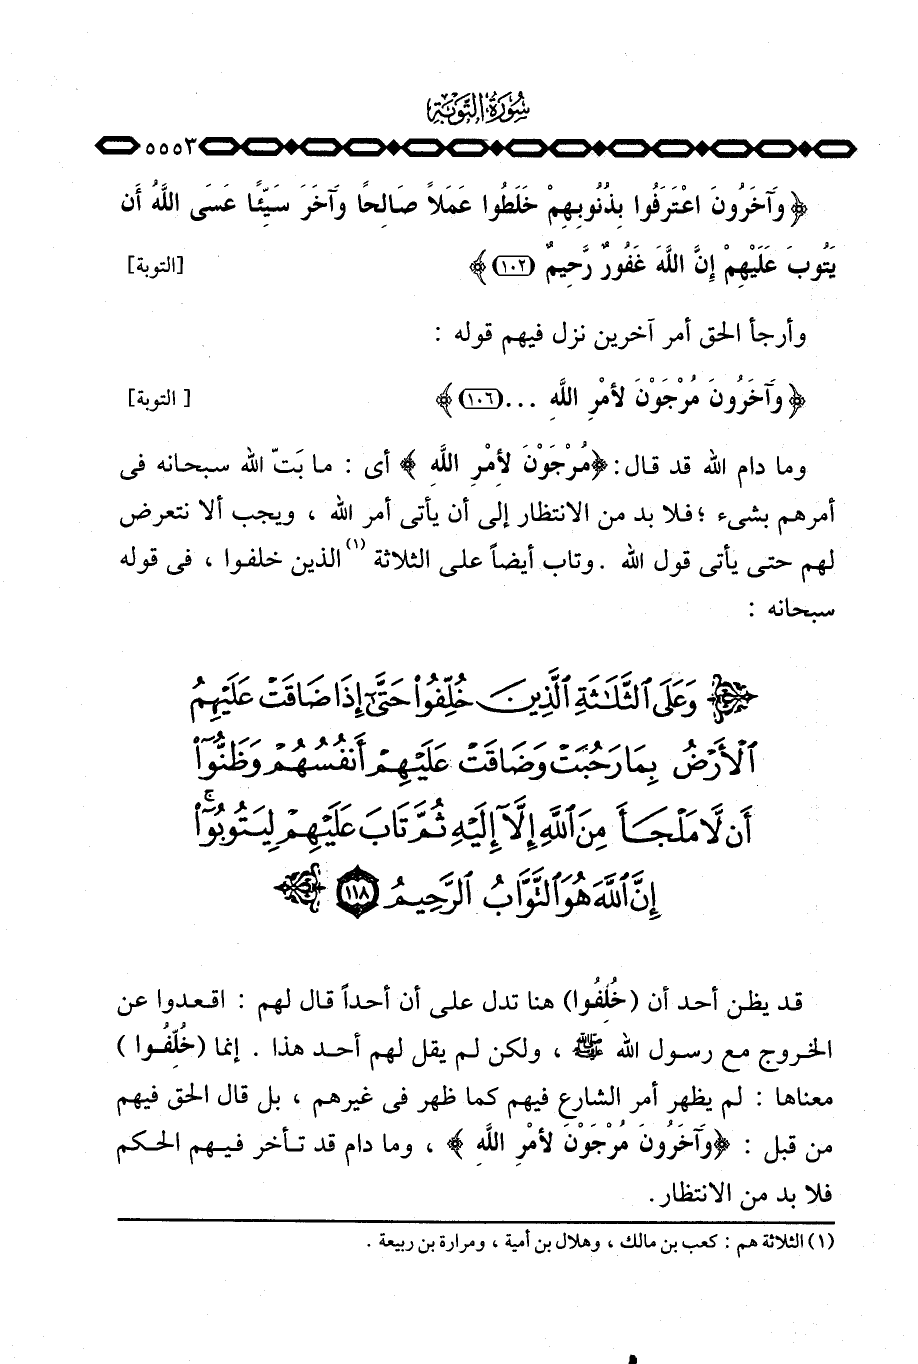 سُورَةُ التَّوبَة
٥٥٥٣
﴿ وَآخَرُونَ اعْتَرَفُوا بِذُنُوبِهِمْ خَلَطُوا عَمَلاً صَالِحًا وَآخَرَ سَيِّئًا عَسَى اللَّهُ أَن
يَتُوبَ عَلَيْهِمْ إِنَّ اللَّهَ غَفُورٌ رَّحِيمٌ (١٠٢) ﴾ [التوبة]
وأرجأ الحق أمر آخرين نزل فيهم قوله :
﴿ وَآخَرُونَ مُرْجَوْنَ لأَمْرِ اللَّهِ ... (١٠٦) ﴾ [ التوبة]
وما دام الله قد قال: ﴿ مُرْجَوْنَ لأَمْرِ اللَّهِ ﴾ أى : ما بَتّ الله سبحانه فى
أمرهم بشىء ؛ فلا بد من الانتظار إلى أن يأتى أمر الله ، ويجب ألا نتعرض
لهم حتى يأتى قول الله . وتاب أيضاً على الثلاثة (١) الذين خلفوا ، فى قوله
سبحانه :
﴿ وَعَلَى ٱلثَّلَٰثَةِ ٱلَّذِينَ خُلِّفُوا۟ حَتَّىٰٓ إِذَا ضَاقَتْ عَلَيْهِمُ
ٱلْأَرْضُ بِمَا رَحُبَتْ وَضَاقَتْ عَلَيْهِمْ أَنفُسُهُمْ وَظَنُّوٓا۟
أَن لَّا مَلْجَأَ مِنَ ٱللَّهِ إِلَّآ إِلَيْهِ ثُمَّ تَابَ عَلَيْهِمْ لِيَتُوبُوٓا۟ ۚ
إِنَّ ٱللَّهَ هُوَ ٱلتَّوَّابُ ٱلرَّحِيمُ ١١٨ ﴾
قد يظن أحد أن (خُلِّفُوا) هنا تدل على أن أحداً قال لهم : اقعدوا عن
الخروج مع رسول الله ﷺ ، ولكن لم يقل لهم أحد هذا . إنما (خُلِّفُوا )
معناها : لم يظهر أمر الشارع فيهم كما ظهر فى غيرهم ، بل قال الحق فيهم
من قبل : ﴿ وَآخَرُونَ مُرْجَوْنَ لأَمْرِ اللَّهِ ﴾ ، وما دام قد تأخر فيهم الحكم
فلا بد من الانتظار .
(١) الثلاثة هم : كعب بن مالك ، وهلال بن أمية ، ومرارة بن ربيعة .